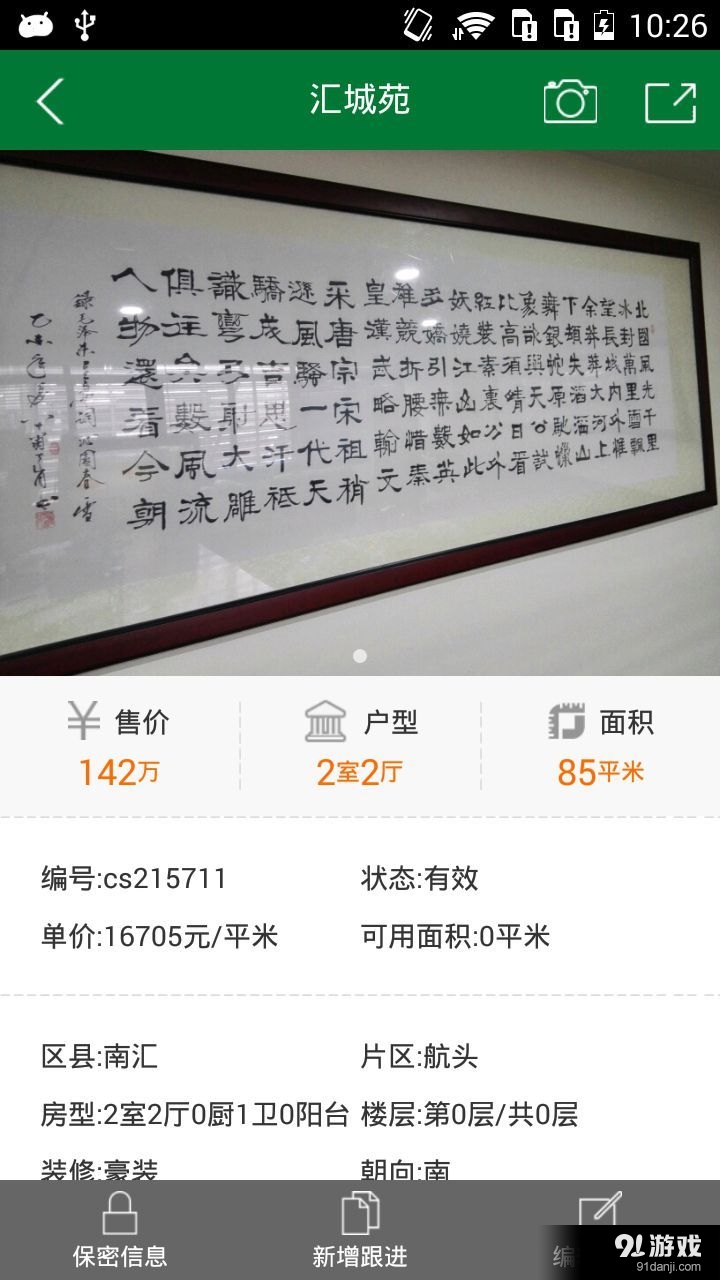 10:26
汇城苑
北國風光千里
冰封萬里雪飄
望長城內外惟
余莽莽大河上
下頓失滔滔山
舞銀蛇原馳蠟
象欲與天公試
比高須晴日看
紅裝素裹分外
妖嬈江山如此
多嬌引無數英
雄競折腰惜秦
皇漢武略輸文
采唐宗宋祖稍
遜風騷一代天
驕成吉思汗祗
識彎弓射大雕
俱往矣數風流
人物還看今朝
售价 户型 面积
142万 2室2厅 85平米
编号:cs215711 状态:有效
单价:16705元/平米 可用面积:0平米
区县:南汇 片区:航头
房型:2室2厅0厨1卫0阳台 楼层:第0层/共0层
装修:豪装 朝向:南
保密信息 新增跟进 编
91游戏
91danji.com